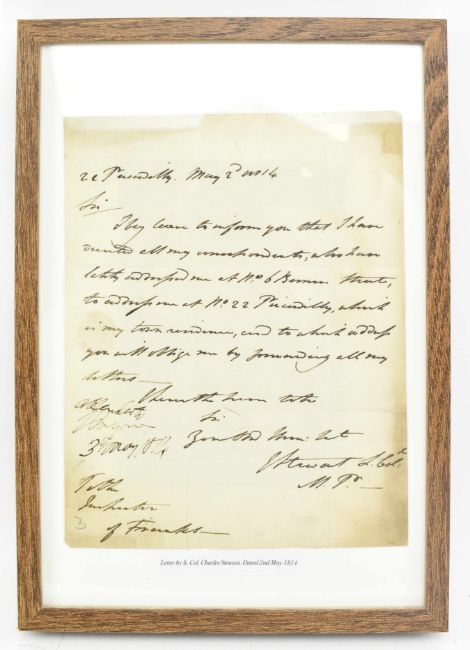 22 Piccadilly. May 2d 1814
Sir
I beg leave to inform you that I have
directed all my correspondents, who have
lately addressed me at No. 6 Berners Street,
to address me at No. 22 Piccadilly, which
is my town residence, and to which address
you will oblige me by forwarding all my
letters —
I have the honor to be
Sir
Your Obd. Hum. Set
3d May 1814
J Stewart Lt. Col.
M. P. —
To the
Inspector
of Franks —
3
Letter by lt. Col. Charles Stewart. Dated 2nd May 1814